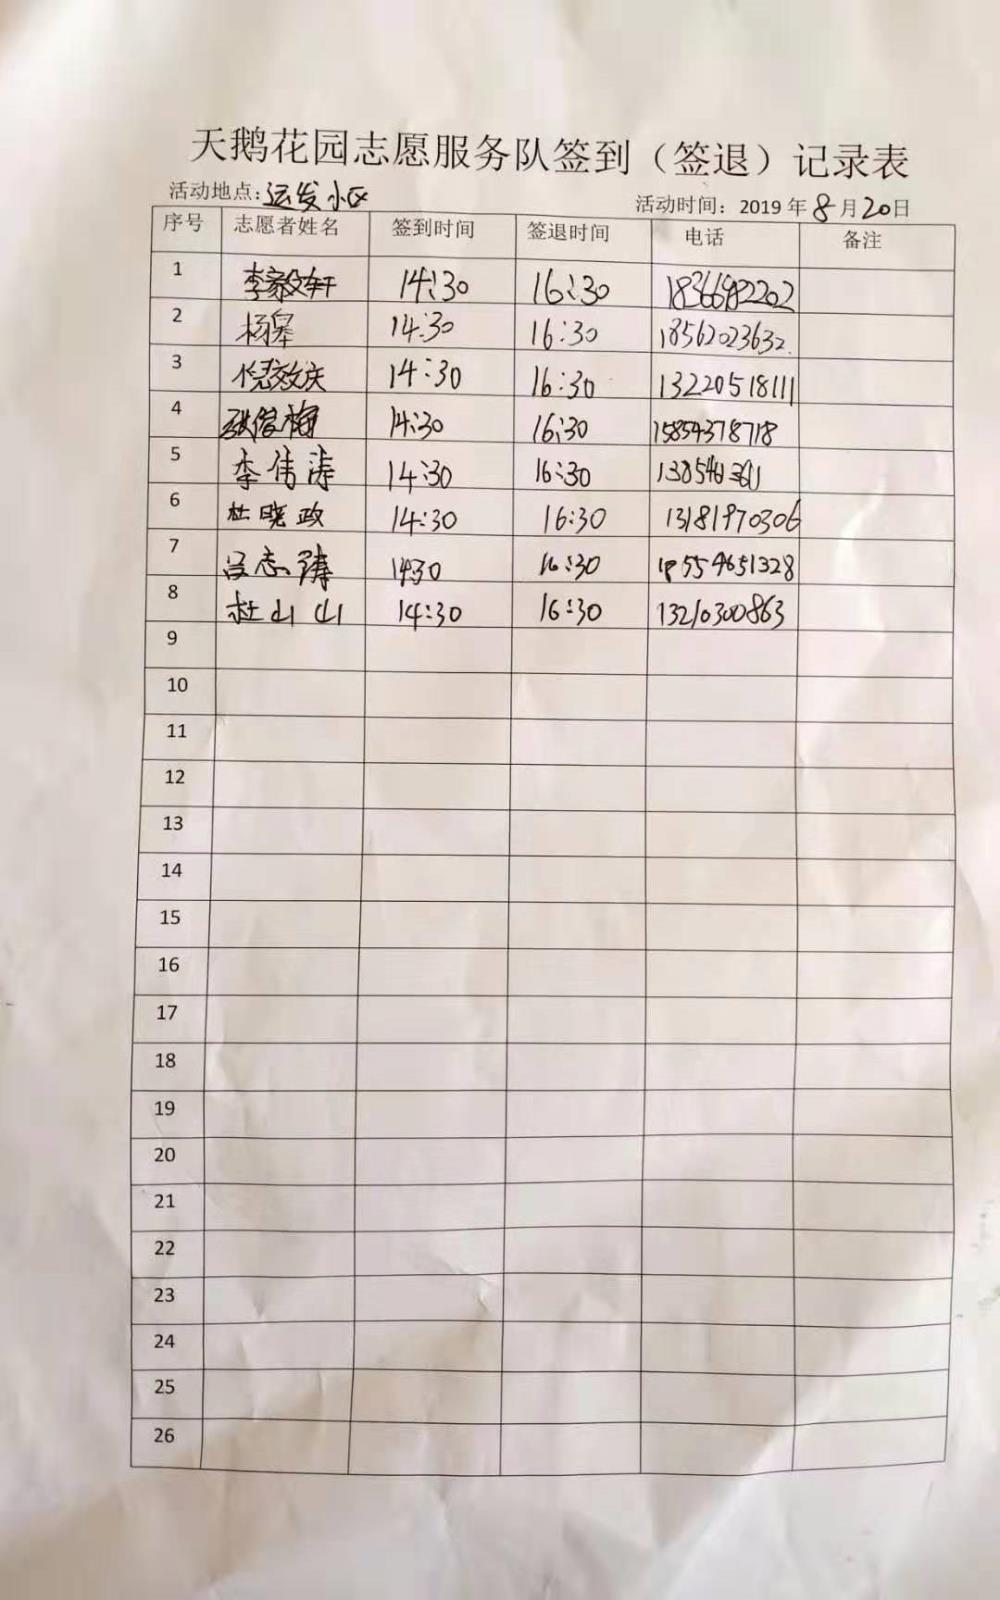 天鹅花园志愿服务队签到（签退）记录表
活动地点：运发小区 活动时间：2019年8月20日
序号 志愿者姓名 签到时间 签退时间 电话 备注
1 李毅轩 14:30 16:30 18366982202
2 杨翠 14:30 16:30 18562023632
3 倪效庆 14:30 16:30 13220518111
4 14:30 16:30 15854378718
5 李伟涛 14:30 16:30
6 杜晓政 14:30 16:30 13181970306
7 吕志涛 1430 16:30
8 杜山山 14:30 16:30 13210300863
9
10
11
12
13
14
15
16
17
18
19
20
21
22
23
24
25
26